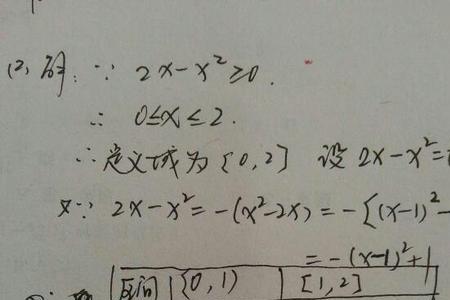 (2) 解: ∵ 2x-x²≥0.
∴ 0≤x≤2.
∴定义域为[0,2] 设 2x-x²=
又∵ 2x-x²=-(x²-2x)=-[(x-1)²-
=-(x-1)²+1
区间 (0,1) [1,2]